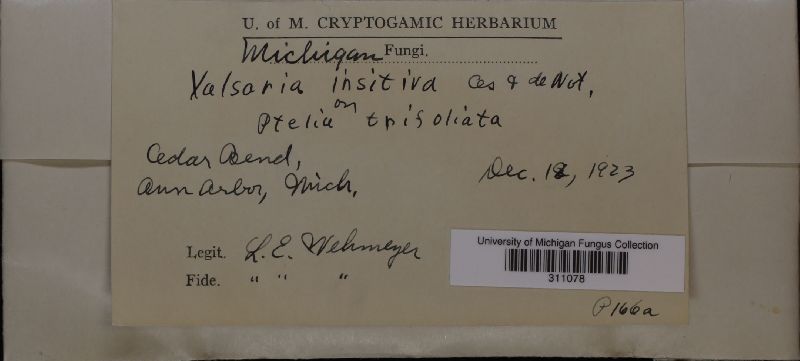 U. of M. CRYPTOGAMIC HERBARIUM
Michigan Fungi.
Valsaria insitiva Ces & de Not.
on
Ptelia trifoliata
Cedar Bend,
Ann Arbor, Mich,
Dec. 12, 1923
Legit. L. E. Wehmeyer
Fide. " " "
University of Michigan Fungus Collection
311078
P166a